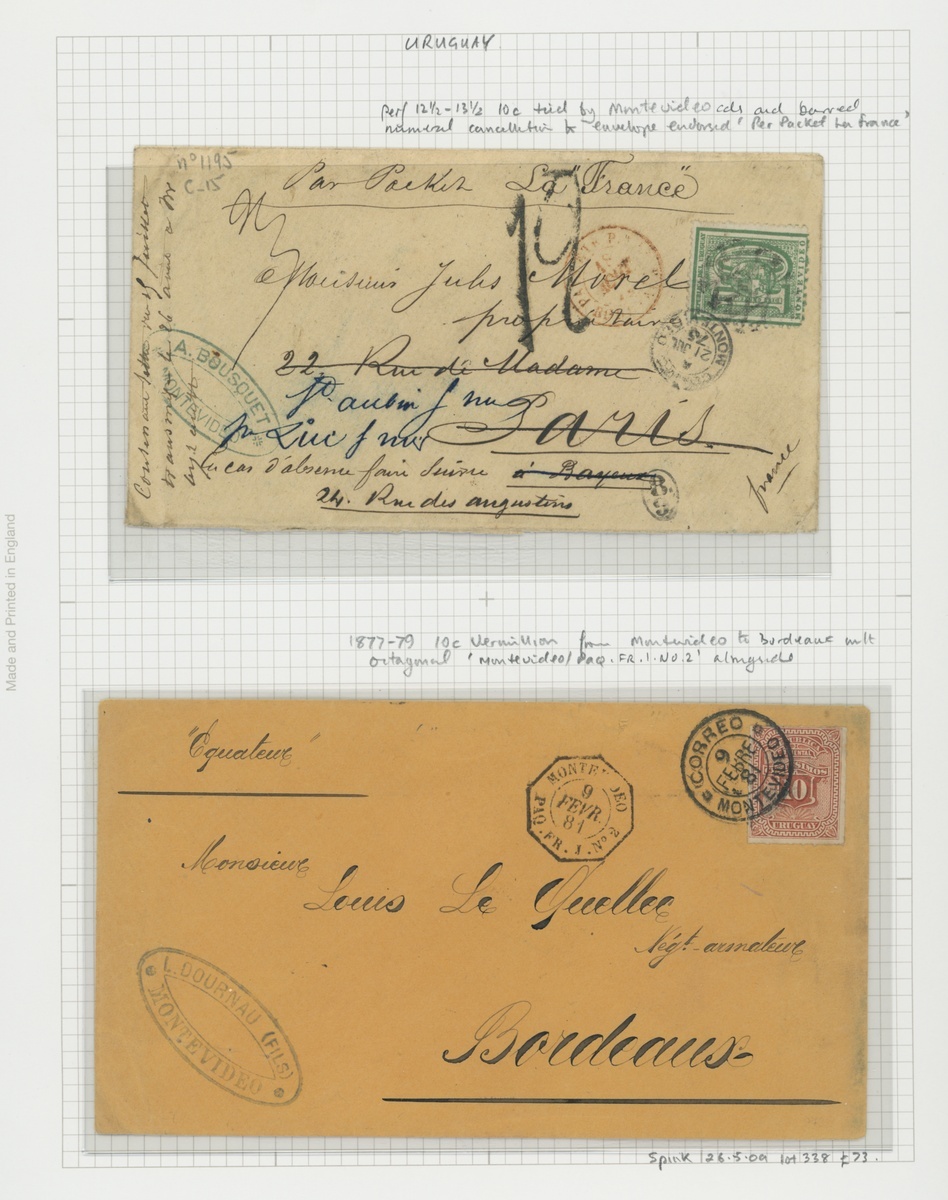 URUGUAY
Perf 12½-13½ 10c tied by Montevideo cds and barred
numeral cancellation to envelope endorsed 'Per Packet La France'
n° 1195
C-15
Par Packet La "France"
Monsieur Jules Morel
propriétaire
22 Rue de Madame
St aubin s/ mer
pr Luc s/ mer Paris.
En cas d'absence faire suivre à Bayeux
24. Rue des augustins
france
A. BOUSQUET
MONTEVIDEO
MONTEVIDEO
21 JUL
75
1877-79 10c Vermillion from Montevideo to Bordeaux with
octagonal 'Montevideo/Paq. FR. J. No. 2' alongside
"Equateur"
MONTEVIDEO
9
FEVR.
81
PAQ. FR. J. No 2
CORREO
9
FEBRE
81
MONTEVIDEO
10
URUGUAY
Monsieur
Louis Le Quellec
Négt-armateur
Bordeaux
L. DOURNAU (FILS)
MONTEVIDEO
Spink 26.5.09 lot 338 £73.
Made and Printed in England